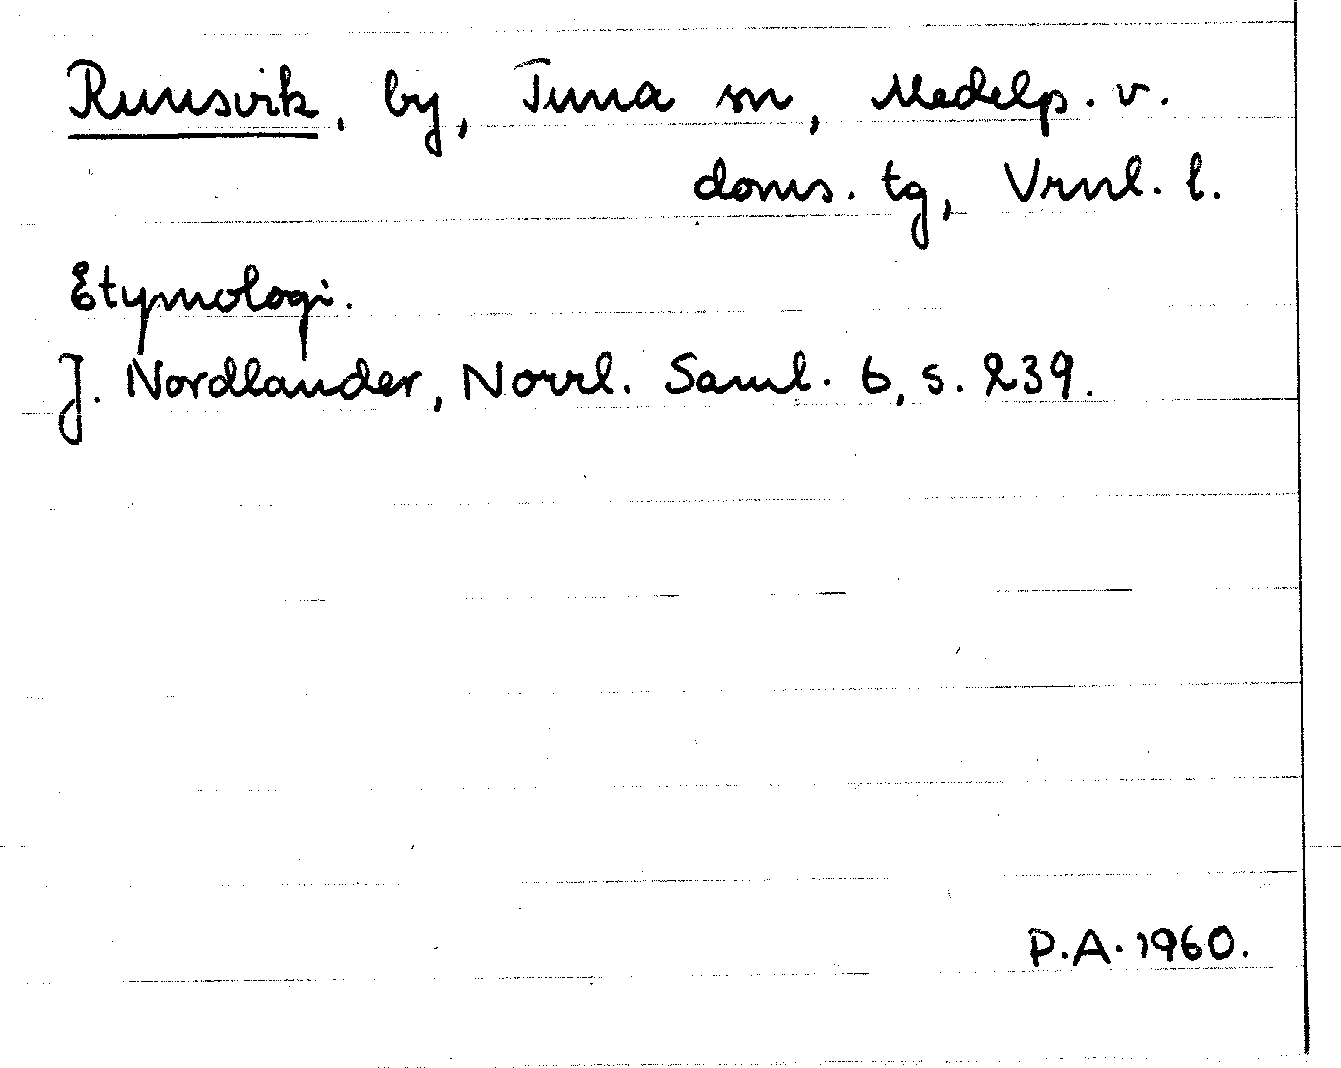 Runsvik, by, Tuna sn, Medelp. v.
doms. tg, Vrnl. l.
Etymologi.
J. Nordlander, Norrl. Saml. 6, s. 239.
P.A. 1960.